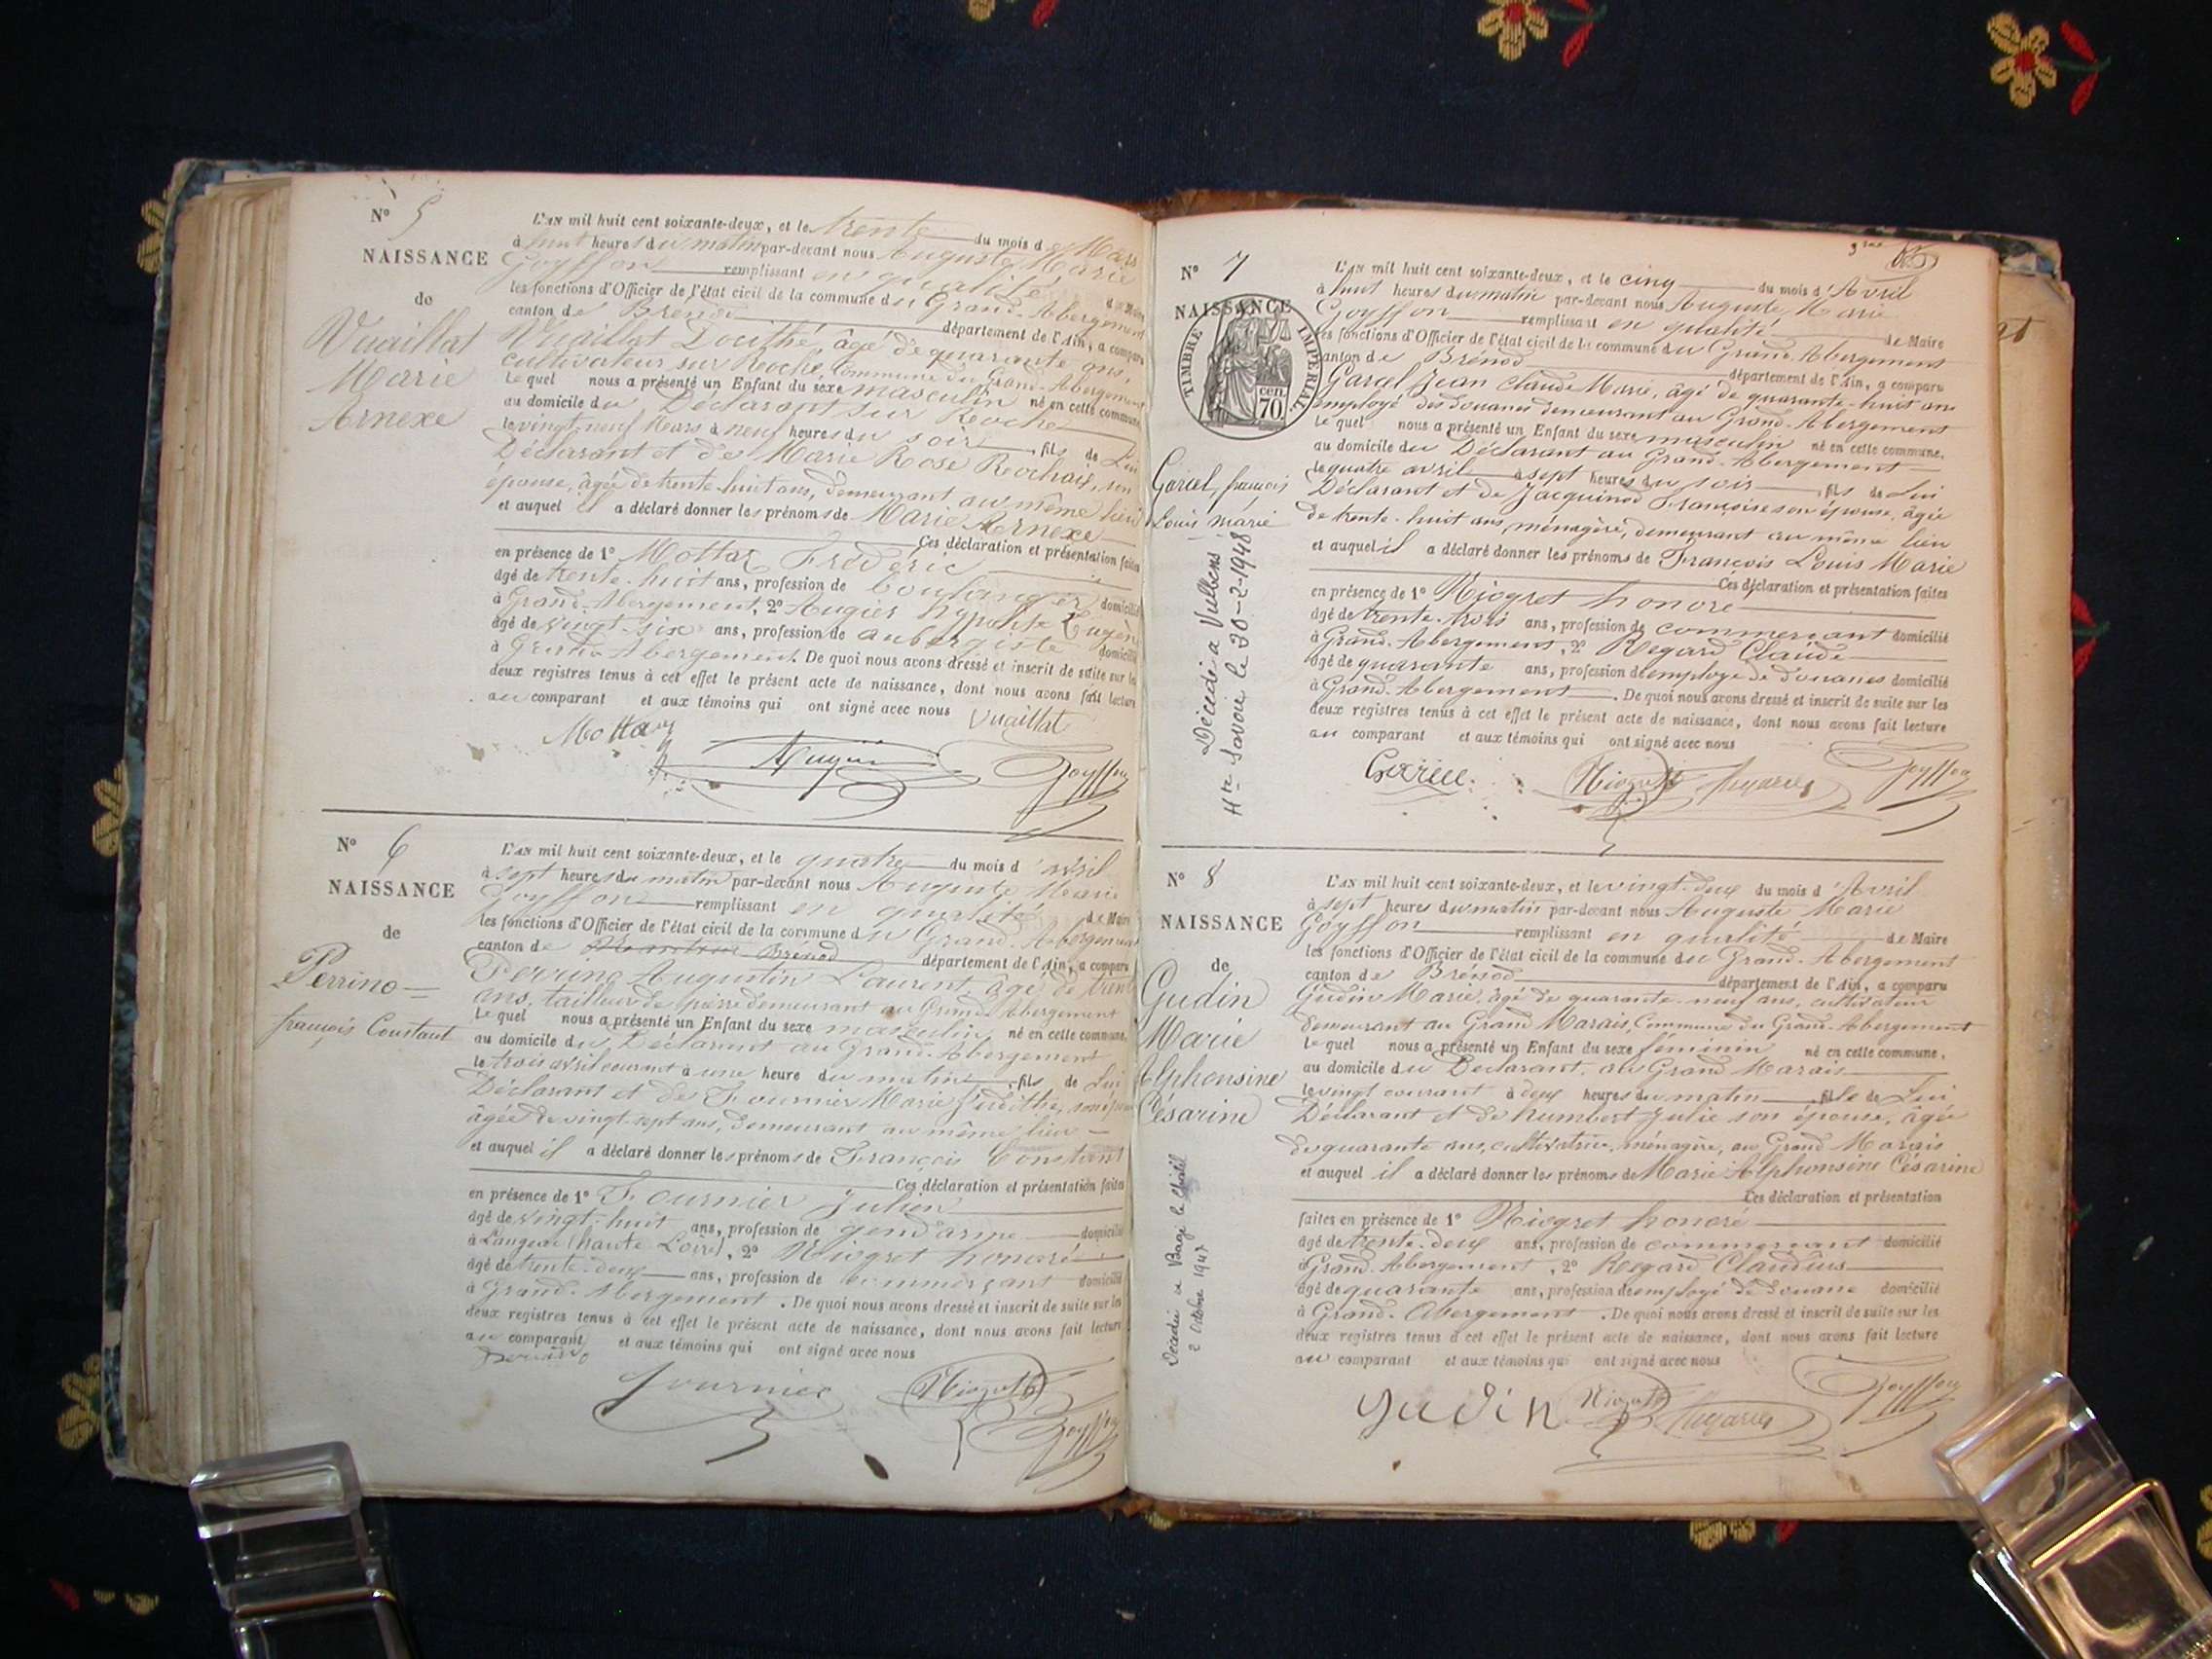 N° 5
NAISSANCE
de
Vuaillat
Marie
Arnexe
L'AN mil huit cent soixante-deux, et le trente du mois de Mars
à huit heures du matin par-devant nous Auguste Marie
Goyffon remplissant en qualité de Maire
les fonctions d'Officier de l'état civil de la commune du Grand-Abergement
canton de Brénod département de l'Ain, a comparu
Vuaillat Douthé, âgé de quarante ans,
cultivateur sur Roche, Commune du Grand-Abergement
Lequel nous a présenté un Enfant du sexe masculin né en cette commune
au domicile du Déclarant sur Roche
le vingt-neuf Mars à neuf heures du soir, fils de Lui
Déclarant et de Marie Rose son
épouse, âgée de trente-huit ans, demeurant au même lieu
et auquel il a déclaré donner les prénoms de Marie Arnexe
Ces déclaration et présentation faites
en présence de 1° Mottaz Fréderic
âgé de trente-huit ans, profession de boulanger domicilié
à Grand-Abergement, 2° Augier hypolite Eugène
âgé de vingt-six ans, profession de aubergiste domicilié
à Grand-Abergement. De quoi nous avons dressé et inscrit de suite sur les
deux registres tenus à cet effet le présent acte de naissance, dont nous avons fait lecture
au comparant et aux témoins qui ont signé avec nous Vuaillat
Mottaz Augier Goyffon
N° 6
NAISSANCE
de
Perrino
françois Constant
L'AN mil huit cent soixante-deux, et le quatre du mois d'avril
à sept heures du matin par-devant nous Auguste Marie
Goyffon remplissant en qualité de Maire
les fonctions d'Officier de l'état civil de la commune du Grand-Abergement
canton de Brénod département de l'Ain, a comparu
Perrino Augustin Laurent, âgé de trente
ans, tailleur de pierre demeurant au Grand-Abergement
Lequel nous a présenté un Enfant du sexe masculin né en cette commune,
au domicile du Déclarant au Grand-Abergement
le trois avril courant à une heure du matin, fils de Lui
Déclarant et de Fournier Marie son épouse
âgée de vingt-sept ans, demeurant au même lieu
et auquel il a déclaré donner les prénoms de François Constant
Ces déclaration et présentation faites
en présence de 1° Fournier Julien
âgé de vingt-huit ans, profession de gendarme domicilié
à Langeac (haute Loire), 2° Niogret honoré
âgé de trente-deux ans, profession de commerçant domicilié
à Grand-Abergement. De quoi nous avons dressé et inscrit de suite sur les
deux registres tenus à cet effet le présent acte de naissance, dont nous avons fait lecture
au comparant et aux témoins qui ont signé avec nous
Perrino
fournier Niogret
Goyffon
3me
N° 7
NAISSANCE
TIMBRE IMPERIAL
70 cen.
Garcel, françois
Louis marie
Décédé à Vulbens
Hte Savoie le 20-2-1948
L'AN mil huit cent soixante-deux, et le cinq du mois d'Avril
à huit heures du matin par-devant nous Auguste Marie
Goyffon remplissant en qualité de Maire
les fonctions d'Officier de l'état civil de la commune du Grand-Abergement
canton de Brénod département de l'Ain, a comparu
Garcel Jean Claude Marie, âgé de quarante-huit ans
employé des douanes demeurant au Grand-Abergement
Lequel nous a présenté un Enfant du sexe masculin né en cette commune,
au domicile du Déclarant au Grand-Abergement
le quatre avril à sept heures du soir, fils de Lui
Déclarant et de Jacquinod Françoise son épouse, âgée
de trente-huit ans, ménagère, demeurant au même lieu
et auquel il a déclaré donner les prénoms de François Louis Marie
Ces déclaration et présentation faites
en présence de 1° Niogret honoré
âgé de trente-trois ans, profession de commerçant domicilié
à Grand-Abergement, 2° Regard Claude
âgé de quarante ans, profession de employé de douanes domicilié
à Grand-Abergement. De quoi nous avons dressé et inscrit de suite sur les
deux registres tenus à cet effet le présent acte de naissance, dont nous avons fait lecture
au comparant et aux témoins qui ont signé avec nous
Garcel Niogret Goyffon
N° 8
NAISSANCE
de
Gudin
Marie
Alphonsine
Césarine
Décédée à Bagé le Châtel
2 Octobre 1947
L'AN mil huit cent soixante-deux, et le vingt-deux du mois d'Avril
à sept heures du matin par-devant nous Auguste Marie
Goyffon remplissant en qualité de Maire
les fonctions d'Officier de l'état civil de la commune du Grand-Abergement
canton de Brénod département de l'Ain, a comparu
Gudin Marie, âgé de quarante-neuf ans, cultivateur
demeurant au Grand Marais, Commune du Grand-Abergement
Lequel nous a présenté un Enfant du sexe féminin né en cette commune,
au domicile du Déclarant, au Grand Marais
le vingt courant à deux heures du matin, fille de Lui
Déclarant et de humbert Julie son épouse, âgée
de quarante ans, cultivatrice, ménagère, au Grand Marais
et auquel il a déclaré donner les prénoms de Marie Alphonsine Césarine
Ces déclaration et présentation
faites en présence de 1° Niogret honoré
âgé de trente-deux ans, profession de commerçant domicilié
à Grand-Abergement, 2° Regard Claudius
âgé de quarante ans, profession de employé de douane domicilié
à Grand-Abergement. De quoi nous avons dressé et inscrit de suite sur les
deux registres tenus à cet effet le présent acte de naissance, dont nous avons fait lecture
au comparant et aux témoins qui ont signé avec nous
gudin Niogret Goyffon